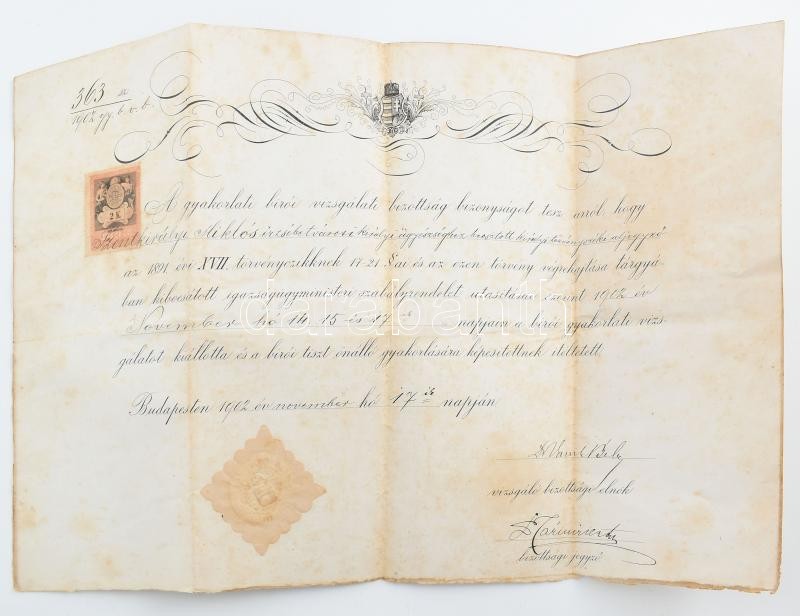 363
1902 gy. b. v. b.
2 K
A gyakorlati birói vizsgálati bizottság bizonyságot tesz arról hogy
Szentkirályi Miklós királyi törvényszéki aljegyző
az 1891. évi XVII. törvényczikknek 17-21. §ai és az ezen törvény végrehajtása tárgyá-
ban kibocsátott igazságügyministeri szabályrendelet utasításai szerint 1902 év
November hó 14, 15 és 17 napjain a birói gyakorlati vizs-
gálatot kiállotta és a birói tiszt önálló gyakorlására képesítettnek ítéltetett.
darabanth
Budapesten 1902 év november hó 17ik napján
Dr Bély
vizsgáló bizottsági elnök
bizottsági jegyző